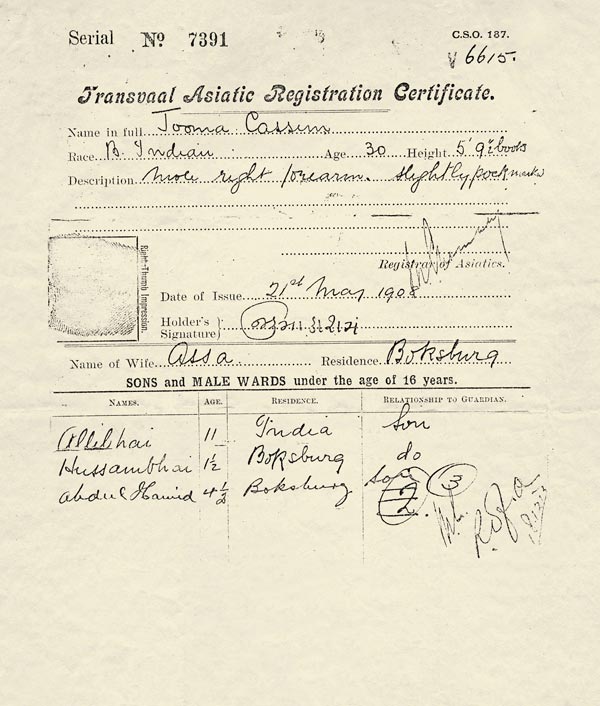 Serial No 7391
C.S.O. 187.
6615.
Transvaal Asiatic Registration Certificate.
Name in full Jooma Cassim
Race B. Indian Age 30 Height 5' 9½ boots
Description Mole right forearm. slightly pock marks
Registrar of Asiatics.
Right-Thumb Impression.
Date of Issue 21st May 1908
Holder's
Signature
Name of Wife Assa Residence Boksburg
SONS and MALE WARDS under the age of 16 years.
NAMES. AGE. RESIDENCE. RELATIONSHIP TO GUARDIAN.
Allibhai 11 India Son
Hussambhai 1½ Boksburg do
Abdul Hamid 4½ Boksburg son
3
2.